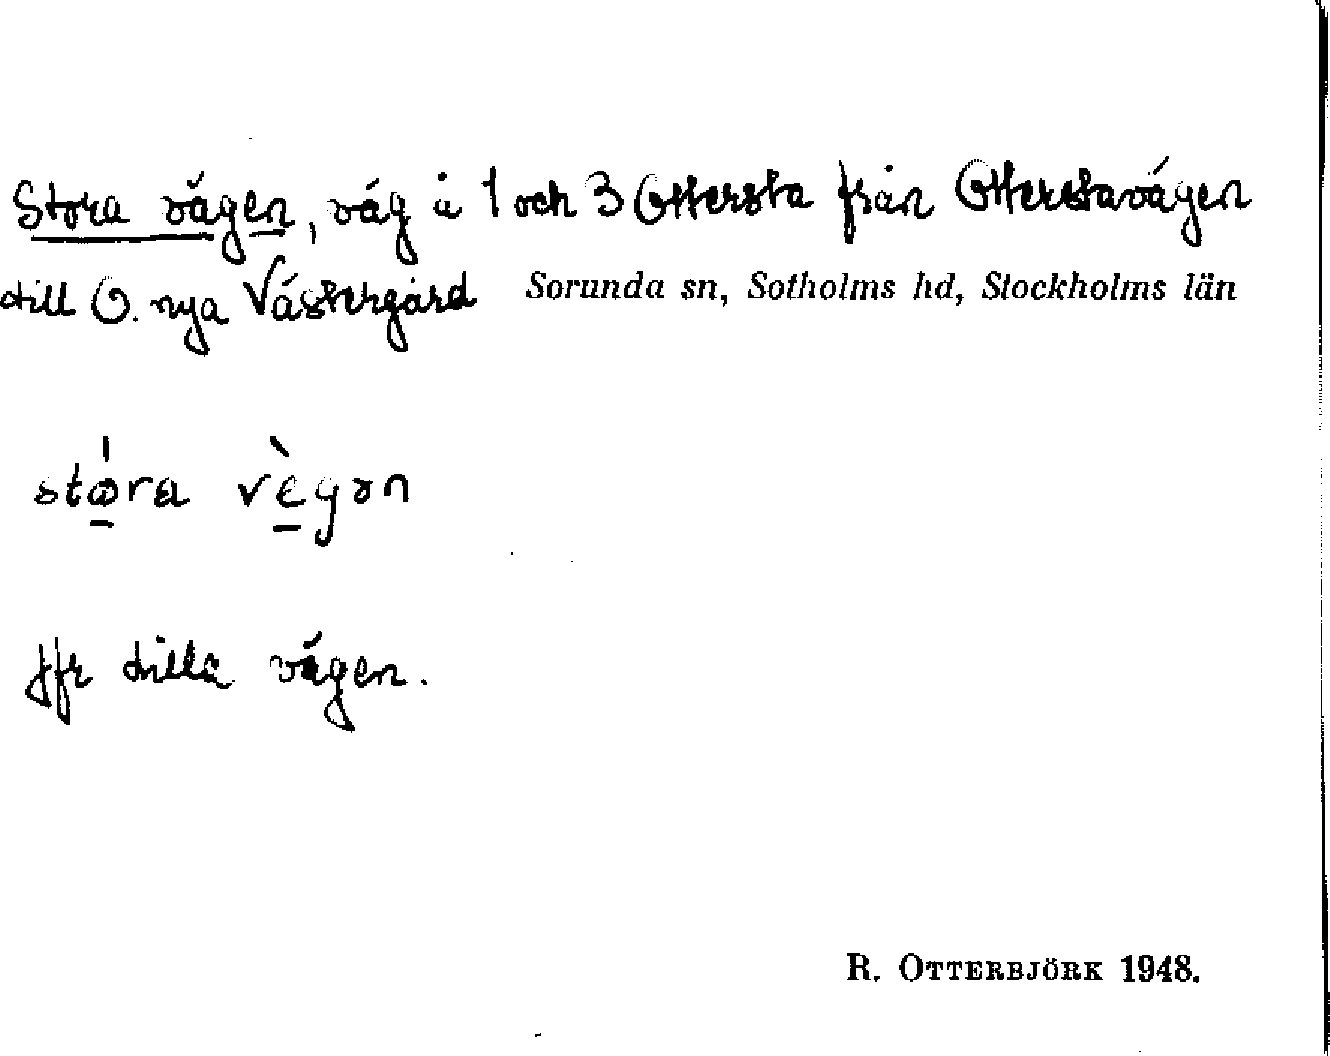 Stora vägen, väg å 1 och 3 Ottersta från Otterstavägen
till O. nya Västergård Sorunda sn, Sotholms hd, Stockholms län
stóra vègən
Jfr lilla vägen.
R. OTTERBJÖRK 1948.